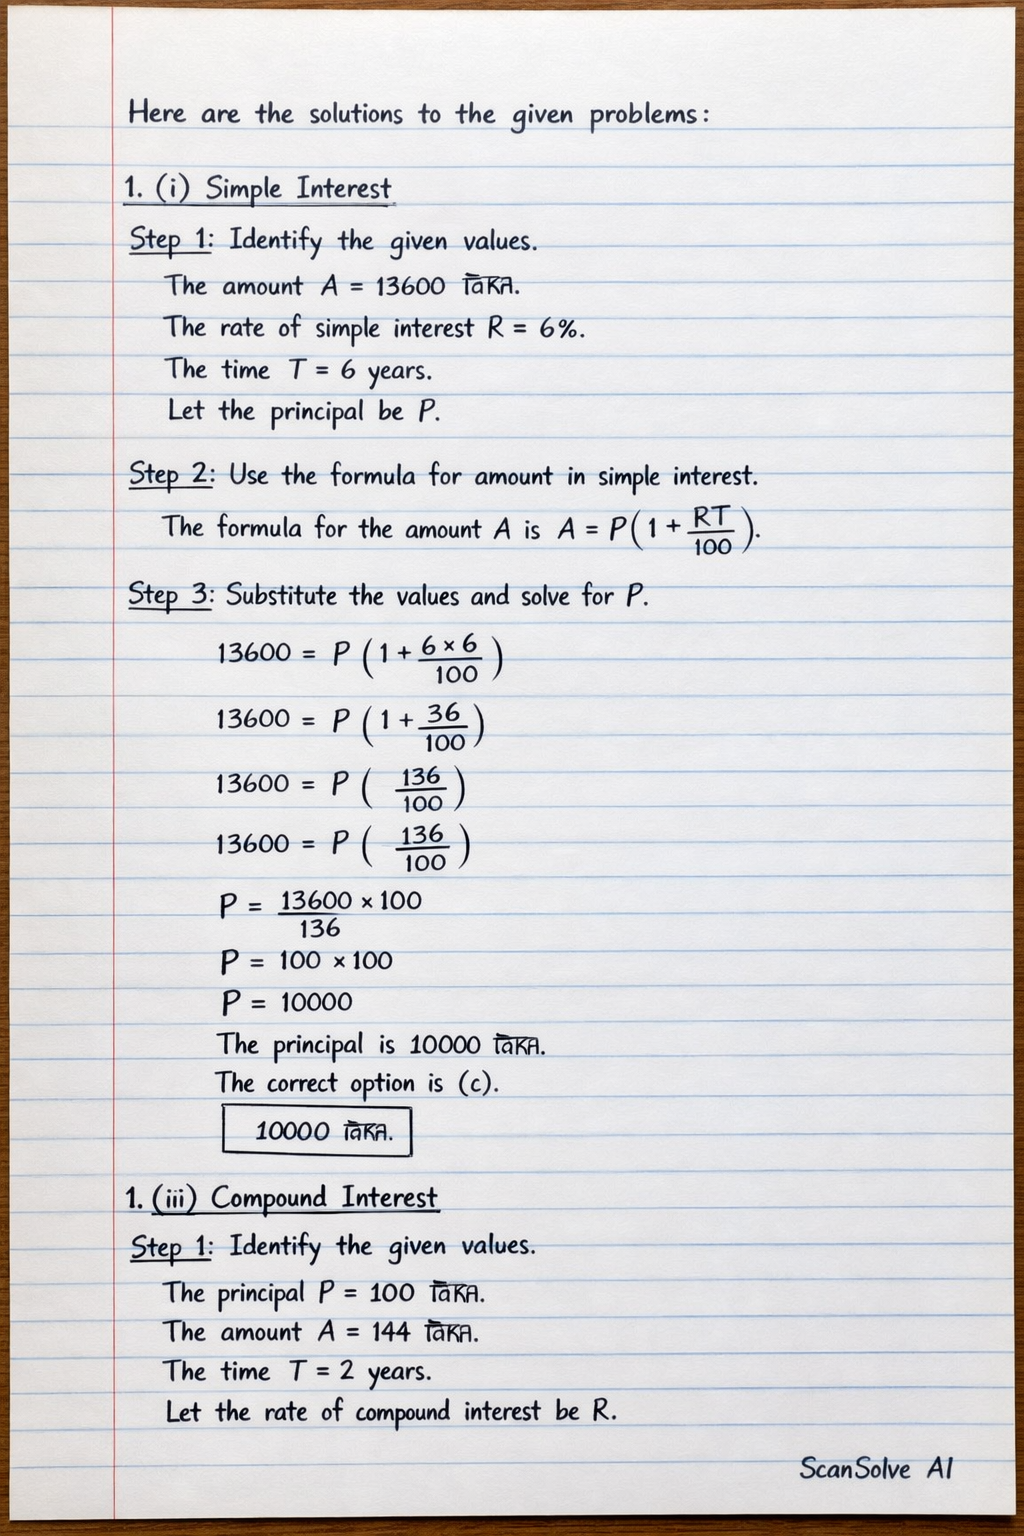 Here are the solutions to the given problems:
1. (i) Simple Interest
Step 1: Identify the given values.
The amount A = 13600
The rate of simple interest R = 6%.
The time T = 6 years.
Let the principal be P.
Step 2: Use the formula for amount in simple interest.
The formula for the amount A is A = P(1 + RT/100).
Step 3: Substitute the values and solve for P.
13600 = P (1 + 6 × 6/100)
13600 = P (1 + 36/100)
13600 = P (136/100)
13600 = P (136/100)
P = 13600 × 100/136
P = 100 × 100
P = 10000
The principal is 10000
The correct option is (c).
10000
1. (iii) Compound Interest
Step 1: Identify the given values.
The principal P = 100
The amount A = 144
The time T = 2 years.
Let the rate of compound interest be R.
ScanSolve AI